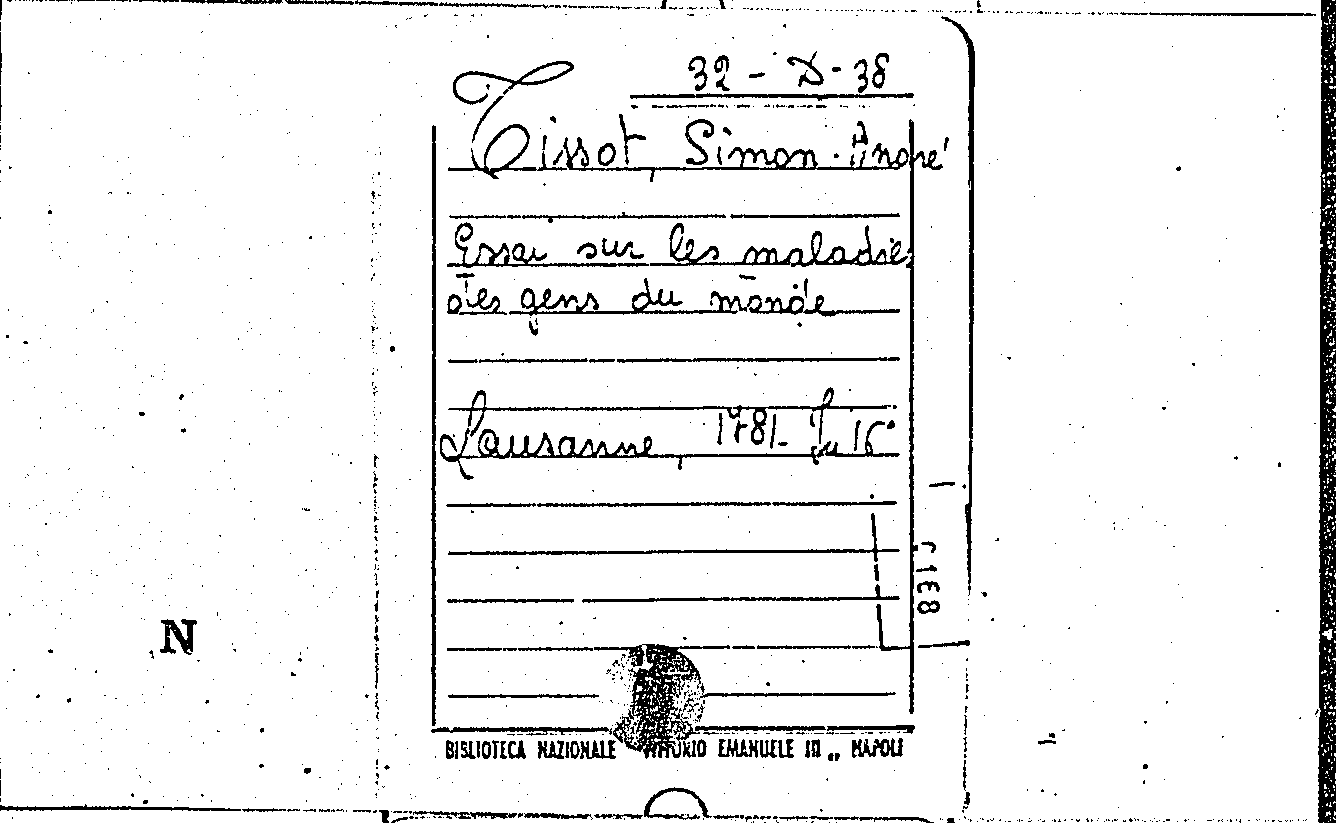 32 - D - 38
Tissot, Simon-André
Essai sur les maladies
des gens du monde
Lausanne, 1781. In 16°
N
BIBLIOTECA NAZIONALE VITTORIO EMANUELE III „ NAPOLI